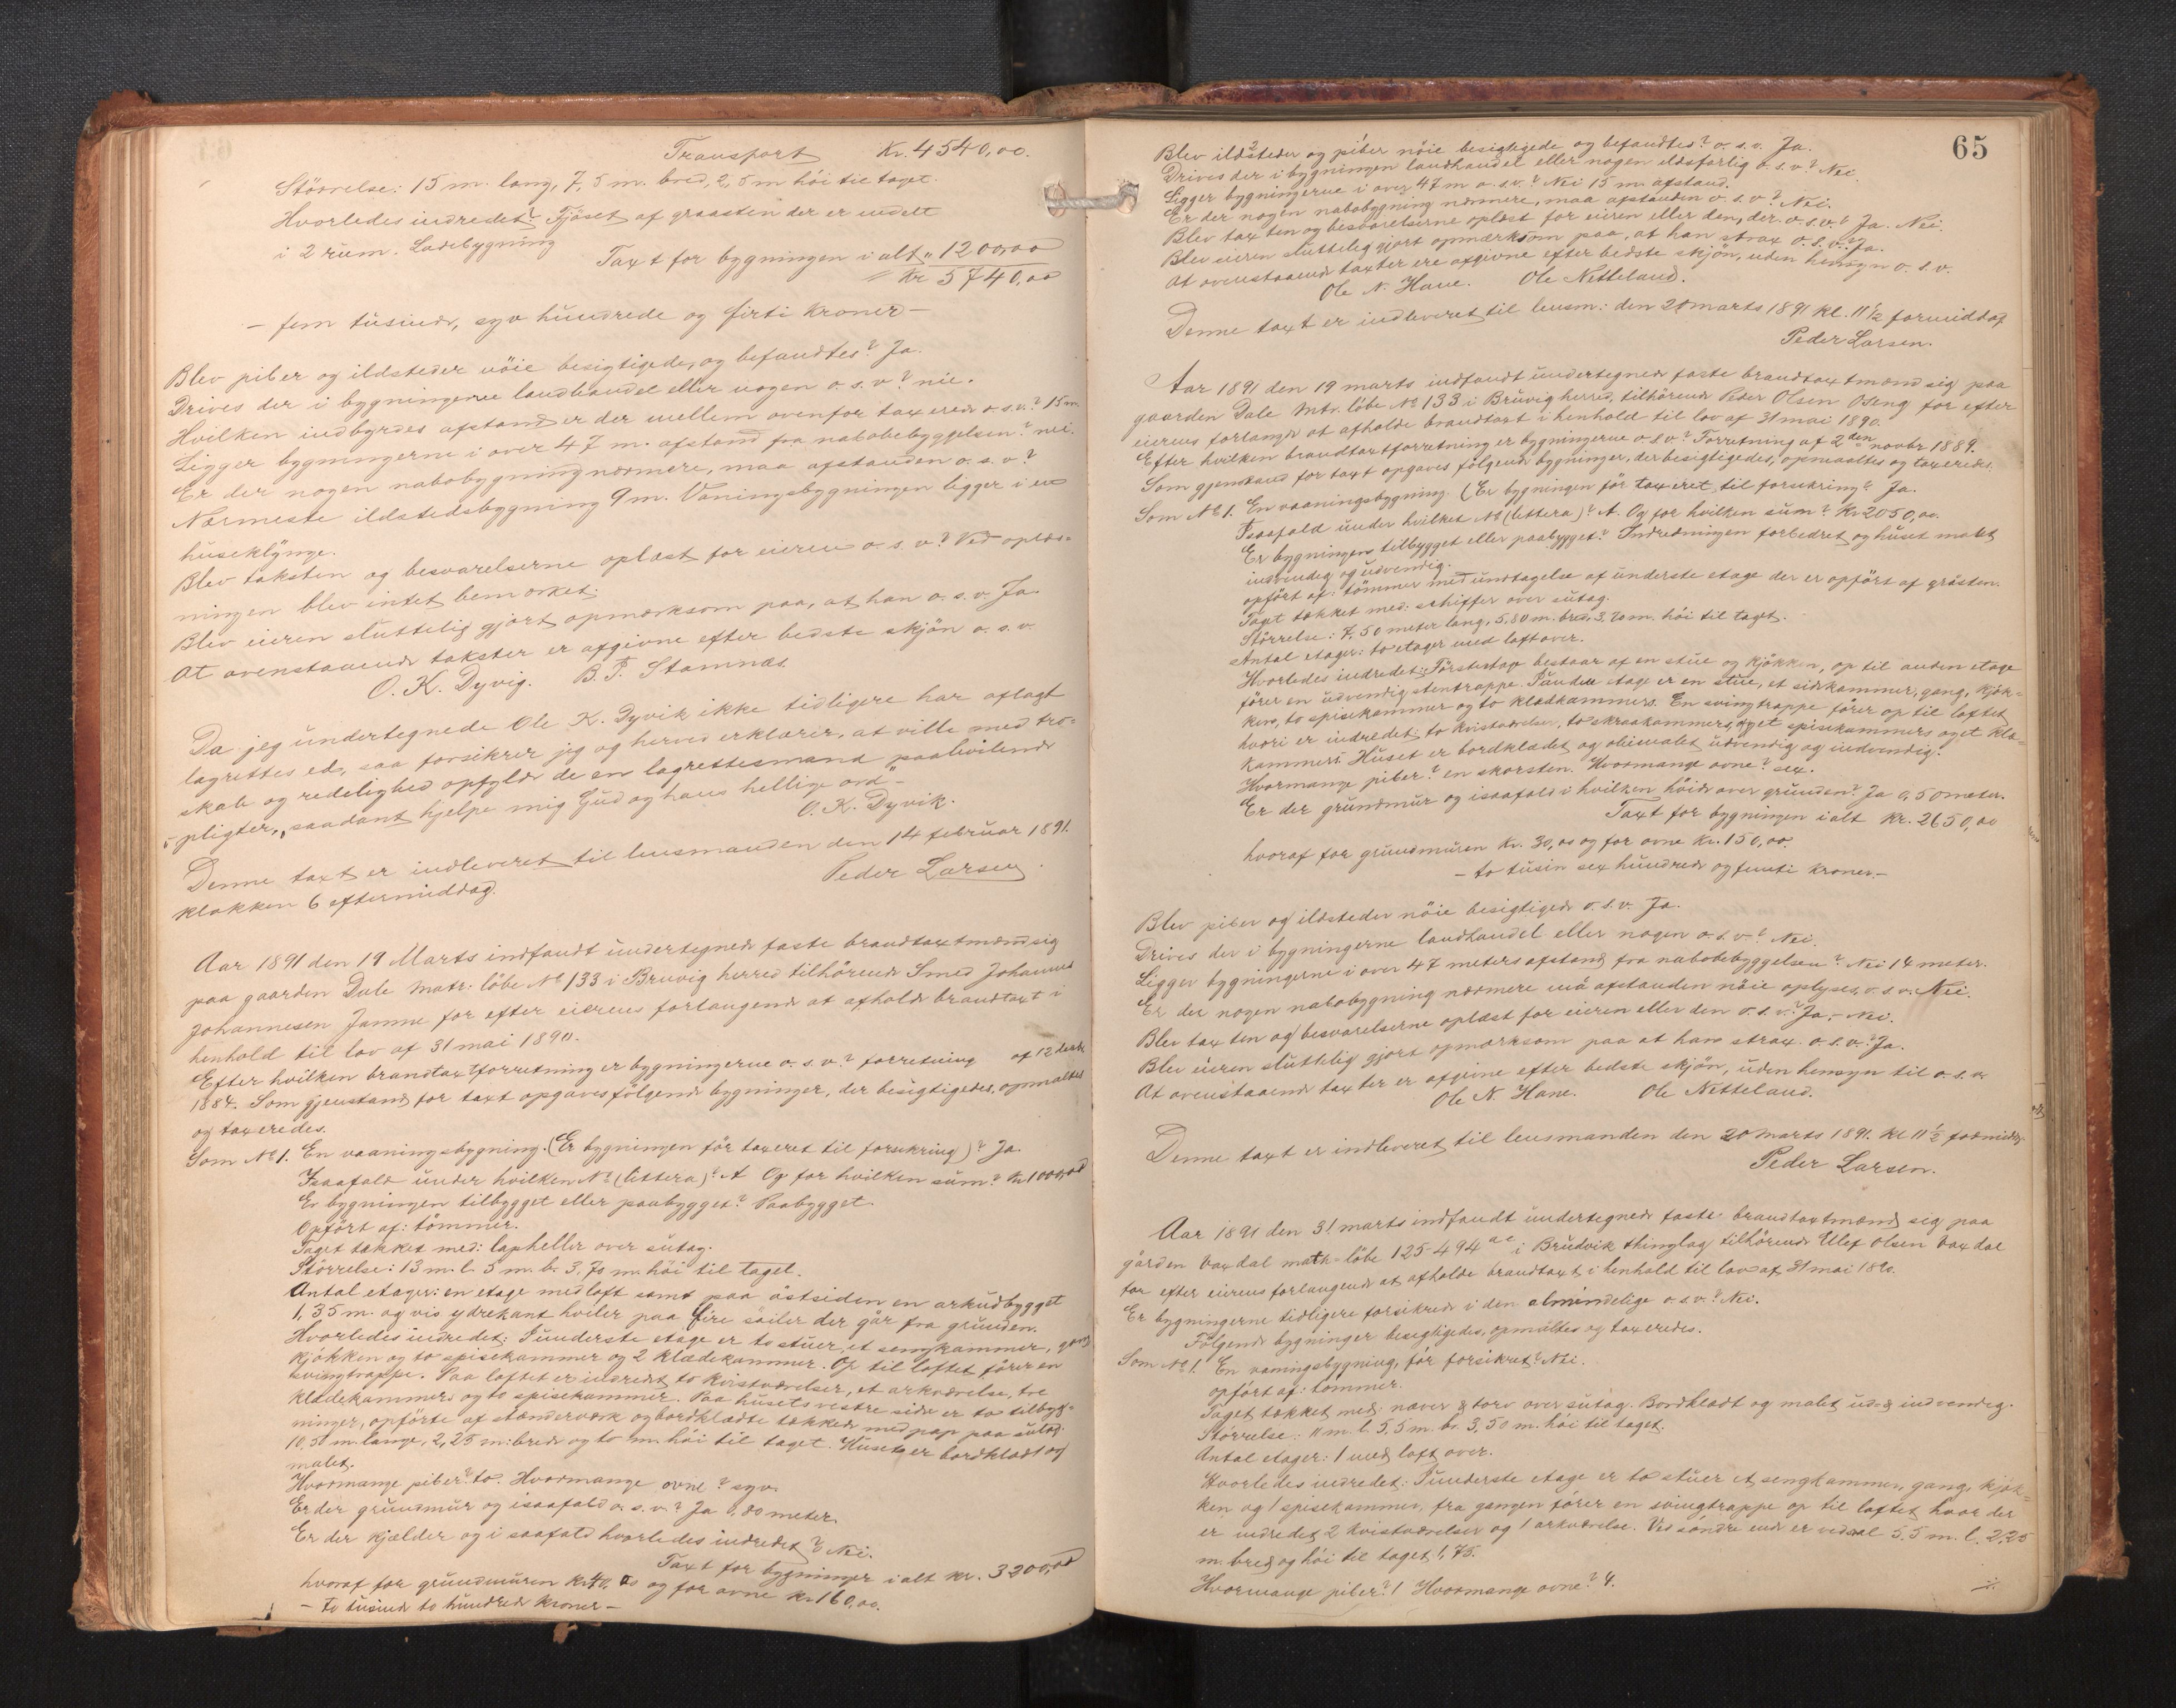 Transport Kr. 4540,00.
Störrelse: 15 m. lang, 7,5 m. bred, 2,5 m höi til taget.
Hvorledes indredet? Fjöset af graasten der er indelt
i 2 rum. Ladebygning
Taxt for bygningen i alt " 1200,00
Kr 5740,00
– fem tusinde, syv hundrede og firti kroner –
Blev piber og ildsteder nöie besigtigede, og befandtes? Ja.
Drives der i bygningerne landhandel eller nogen o s. v? nie.
Hvilken indbyrdes afstand er der mellem ovenfor taxerede o s.v.? 15 m
Ligger bygningerne i over 47 m. afstand fra nabobebyggelsen? nei.
Er der nogen nabobygning nærmere, maa afstanden o. s. v?
Nærmeste ildstedsbygning 9 m. Vaningsbygningen ligger i en
huseklynge.
Blev taksten og besvarelserne oplæst for eieren o. s. v? Ved oplæs-
ningen blev intet bemærket.
Blev eieren sluttelig gjort opmærksom paa, at han o. s. v. Ja.
At ovenstaaende takster er afgivne efter bedste skjön o. s. v.
O. K. Dyvig. B. T. Stamnæs.
Da jeg undertegnede Ole K. Dyvik ikke tidligere har aflagt
lagrettes ed, saa forsikrer jeg og herved erklærer, at ville med tro-
skab og redelighed opfylde de en lagrettesmand paahvilende
pligter, "saadant hjelpe mig Gud og hans hellige ord" –
O. K. Dyvik.
Denne taxt er indleveret til lensmanden den 14 februar 1891.
klokken 6 eftermiddag.
Peder Larsen
Aar 1891 den 19 Marts indfandt undertegnede faste brandtaxtmænd sig
paa gaarden Dale Matr: löbe No 133 i Bruvig herred tilhörende Smed Johannes
Johannesen Jamne for efter eierens forlangende at afholde brandtaxt i
henhold til lov af 31 mai 1890.
Efter hvilken brandtaxtforretning er bygningerne o. s. v? forretning af 12
1884. Som gjenstand for taxt opgaves fölgende bygninger, der besigtigedes, opmaltes
og taxeredes.
Som No 1. En vaaningsbygning. (Er bygningen för taxeret til forsikring)? Ja.
Isaafald under hvilken No (littera)? A Og for hvilken sum? Kr 1000,00
Er bygningen tilbygget eller paabygget? Paabygget
Opfört af: tömmer.
Taget tækket med: lapheller over sutag.
Störrelse: 13 m. l. 5 m. b. 3,70 m höi til taget.
Antal etager: en etage med loft samt paa östsiden en arkudbygget
1,35 m. og vis ydrekant hviler paa fire söiler der går fra grunden.
Hvorledes indredet: I underste etage er to stuer, et sengkammer, gang
kjökken og to spisekammer og 2 klædekammer. Op til loftet förer en
svingtrappe. Paa loftet er indredet to kvistværelser, et arkværelse, tre
klædekammer og to spisekammer. Paa husets vestre side er to tilbyg-
ninger, opförte af stænderværk og bordklædte tækkede med pap paa sutag.
10,50 m. lange, 2,25 m: brede og to m. höi til taget. Huset er bordklædt og
malet.
Hvormange piber? to. Hvormange ovne? syv.
Er der grundmur og isaafald o. s. v.? Ja 0,80 meter.
Er der kjælder og i saafald hvorledes indredet? Nei.
Taxt for bygninger ialt kr. 3200,00
hvoraf for grundmuren Kr 40,00 og for ovne Kr 160,00.
– to tusinde to hundrede kroner –
65
Blev ildsteder og piber nöie besigtigede og befandtes? o. s. v. Ja.
Drives der i bygningen landhandel eller nogen ildsfarlig o. s. v? Nei.
Ligger bygningerne i over 47 m o. s. v.? Nei 15 m. afstand.
Er der nogen nabobygning nærmere, maa afstanden o. s. v? Nei.
Blev taxten og besvarelserne oplæst for eieren eller den, der o. s. v.? Ja. Nei.
Blev eieren sluttelig gjort opmærksom paa, at han strax o. s. v. Ja.
At ovenstaaende taxter ere afgivne efter bedste skjön, uden hensyn o. s. v.
Ole N. Hane. Ole Netteland.
Denne taxt er indleveret til lensm: den 20 marts 1891 kl. 11 1/2 formiddag
Peder Larsen.
Aar 1891 den 19 marts indfandt undertegnede faste brandtaxtmænd sig paa
gaarden Dale Mtr. löbe No 133 i Bruvig herred, tilhörende Peder Olsen Oseng for efter
eierens forlangde at afholde brandtaxt i henhold til lov af 31 mai 1890.
Efter hvilken brandtaxtforretning er bygningerne o s v? Forretning af 2den novbr 1889.
Som gjenstand for taxt opgaves fölgende bygninger, der besigtigedes, opmaaltes og taxeredes.
Som No 1. En vaaningsbygning. (Er bygningen för taxeret til forsikring? Ja.
Isaafald under hvilket No (littera)? A. Og for hvilken sum? Kr 2050,00.
Er bygningen tilbygget eller paabygget? Indredningen forbedret og huset malet
indvendig og udvendig.
opfört af: tömmer med undtagelse af underste etage der er opfört af gråsten.
Taget tækket med: schiffer over sutag.
Störrelse: 7,50 meter lang, 5,80 m. bred, 3,70 m. höi til taget.
Antal etager: to etager med loft over.
Hvorledes indredet: Förste etage bestaar af en stue og kjökken, op til anden etage
förer en udvendig stentrappe. I anden etage er en stue, et sidekammer, gang, kjök-
ken, to spisekammer og to klædkammers. En svingtrappe förer op til loftet
hvori er indredet: to kvistværelser, to skraakammers, og et spisekammers og et klæ-
kammers. Huset er bordklædet og oliemalet udvendig og indvendig.
Hvormange piber? en skorsten. Hvormange ovne? sex.
Er der grundmur og isaafald i hvilken höide over grunden? Ja 0,50 meter.
Taxt for bygningen i alt Kr. 2650,00
hvoraf for grundmuren Kr. 30,00 og for ovne Kr. 150,00.
– to tusin sex hundrede og femti kroner. –
Blev piber og ildsteder nöie besigtigede o. s. v. Ja.
Drives der i bygningerne landhandel eller nogen o. s. v? Nei.
Ligger bygningerne i over 47 meters afstand fra nabobebyggelsen? Nei 14 meter.
Er der nogen nabobygning nærmere må afstanden nöie oplyses, o. s. v. Nei.
Blev taxten og besvarelserne oplæst for eieren eller den o. s. v.? Ja. – Nei.
Blev eieren sluttelig gjort opmærksom paa at han strax o. s. v. Ja.
At ovenstaaende taxter er afgivne efter bedste skjön, uden hensyn til o. s. v
Ole N. Hane. Ole Netteland.
Denne taxt er indleveret til lensmanden den 20 Marts 1891. Kl 11 1/2 formiddag
Peder Larsen.
Aar 1891 den 31 marts indfandt undertegnede faste brandtaxtmænd sig paa
gården Vaxdal matk-löbe 125-494 ac i Brudvik thinglag tilhörende Ellef Olsen Vaxdal
for efter eierens forlangende at afholde brandtaxt i henhold til lov af 31 mai 1890.
Er bygningerne tidligere forsikrede i den almindelige o. s. v.? Nei.
Fölgende bygninger besigtigedes, opmåltes og taxeredes.
Som No. 1. En vaningsbygning, för forsikret? Nei.
opfört af: tömmer.
Taget tækket med: næver & torv over sutag. Bordklædt og malet ud- & indvendig.
Störrelse: 11 m. l. 5,5 m. br. 3,50 m. höi til taget.
Antal etager: 1 med loft over.
Hvorledes indredet: I underste etage er to stuer et sengkammer, gang, kjök-
ken og 1 spisekammer, fra gangen förer en svingtrappe op til loftet hvor der
er indredet 2 kvistværelser og 1 arkværelse. Ved söndre ende er vedskal 5,5 m. l. 2,25
m. bred og höi til taget 1,75.
Hvormange piber? 1 Hvormange ovne? 4.